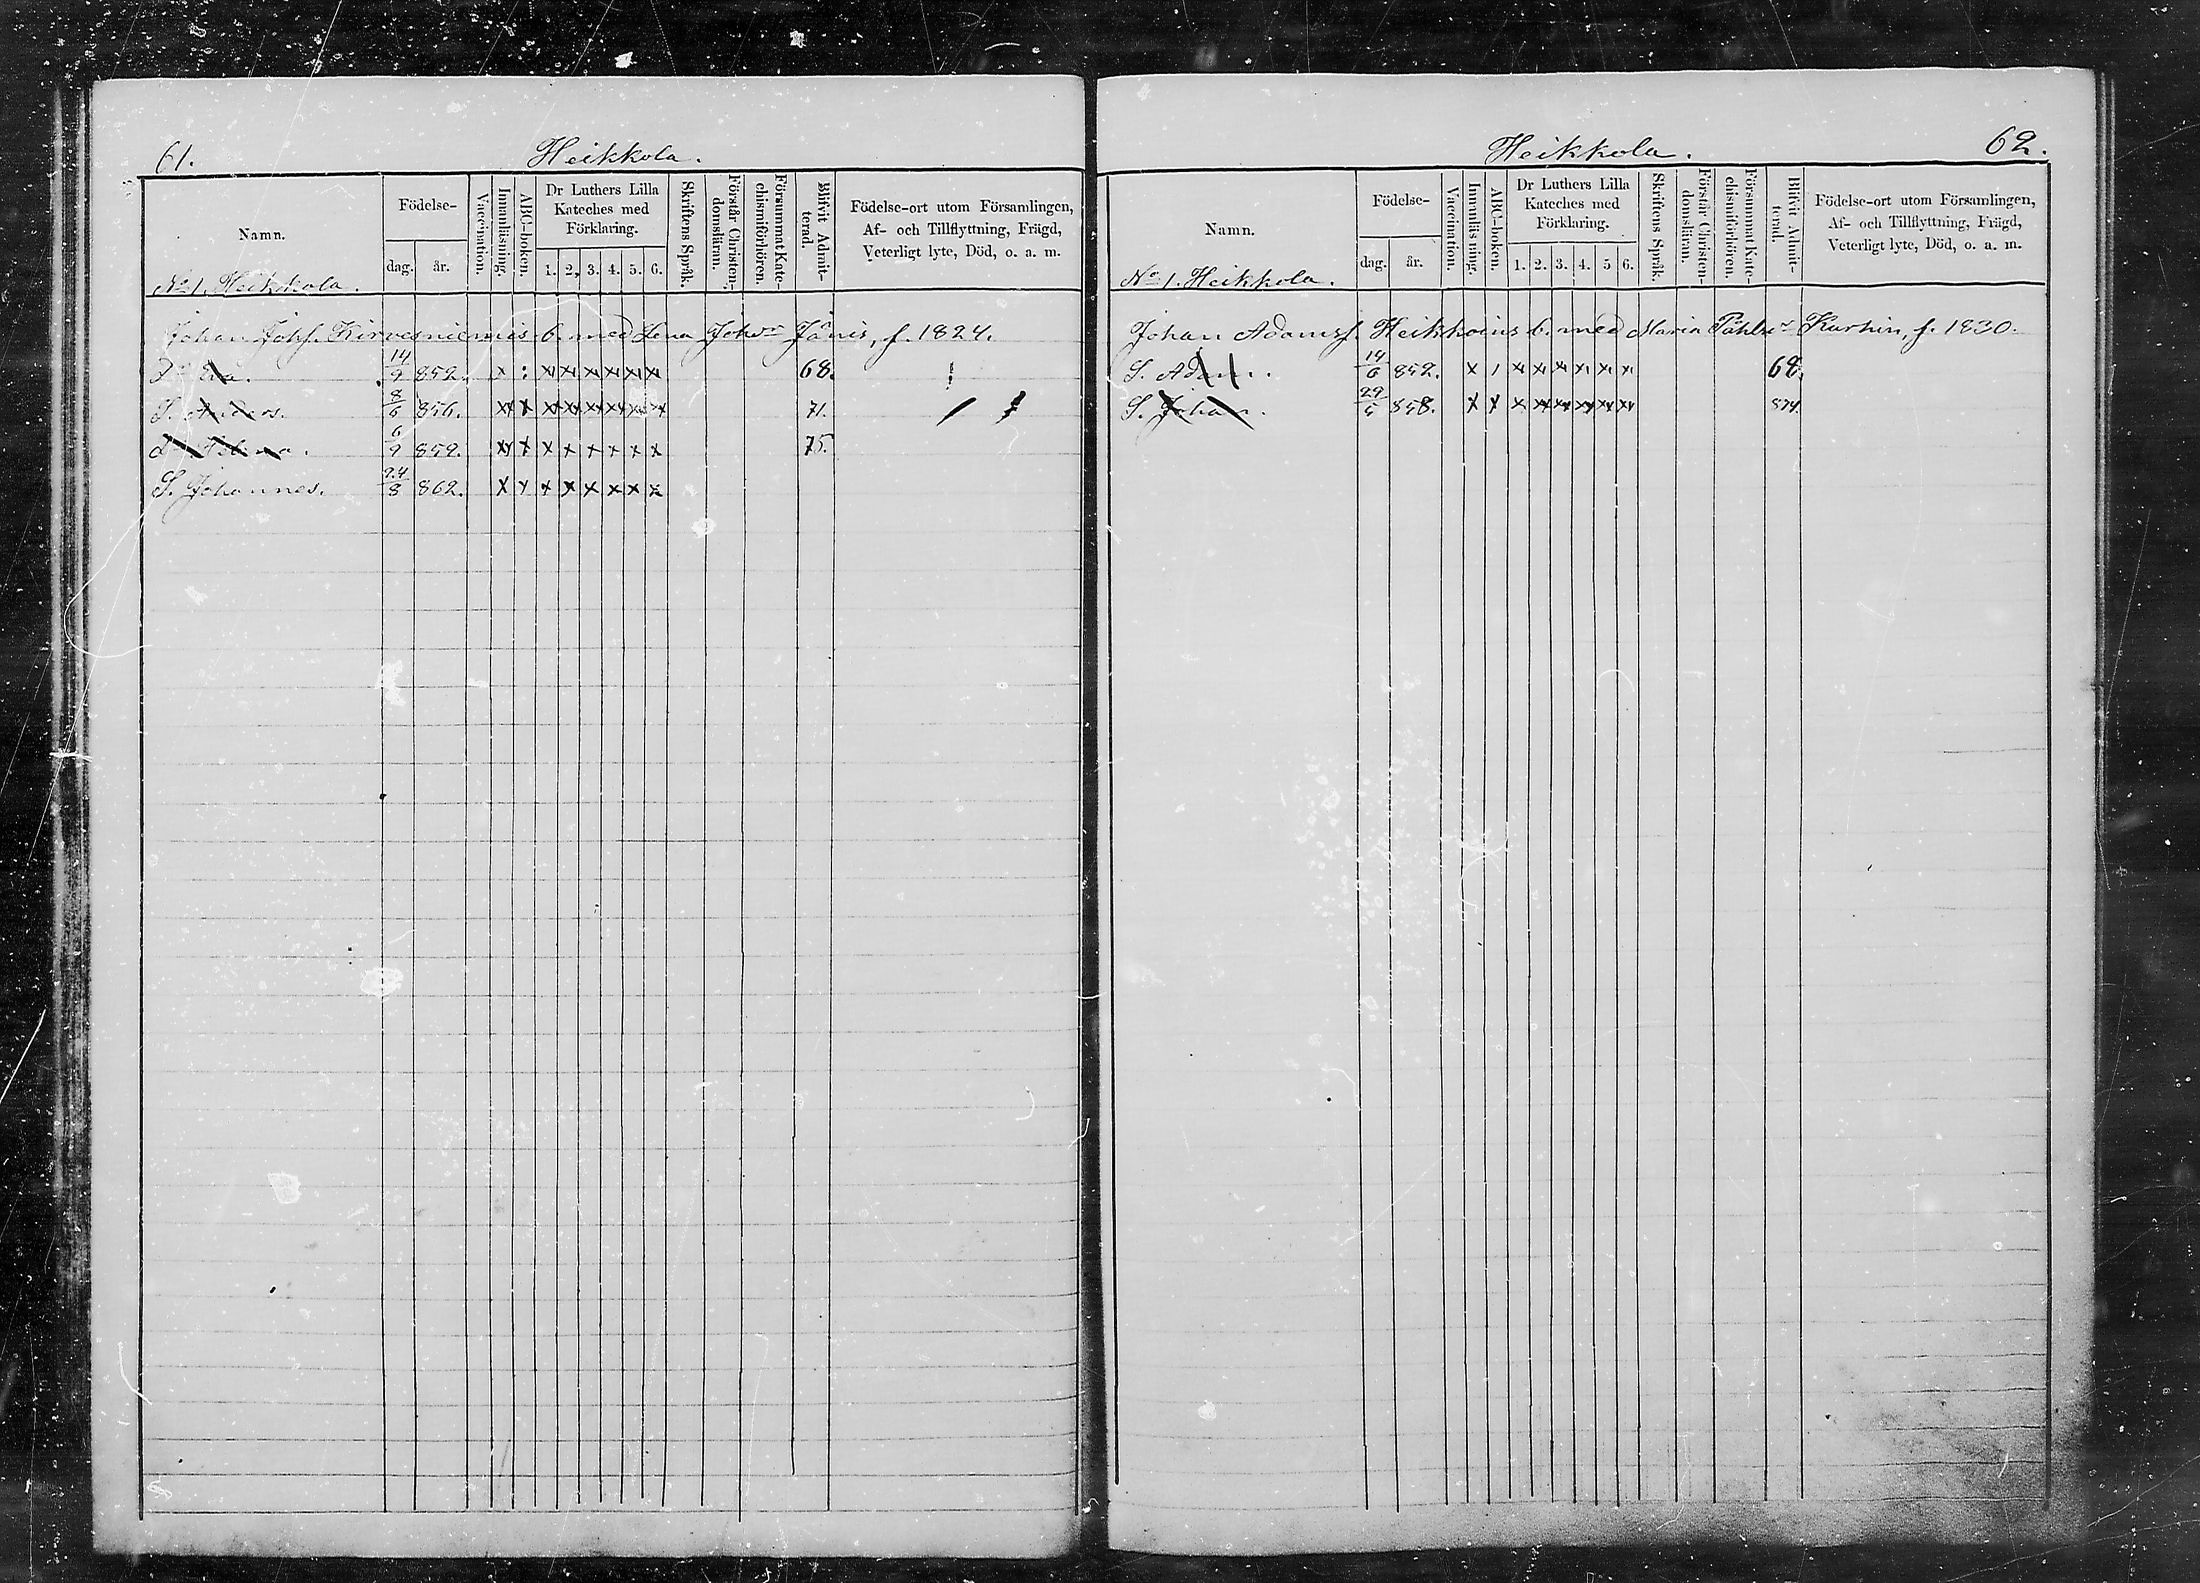 61.
Heikkola.
Namn.
Födelse-
dag.
år.
Vaccination.
Innanläsning.
ABC-boken.
Dr Luthers Lilla
Kateches med
Förklaring.
1. 2, 3. 4. 5. 6.
Skriftens Språk.
Förstår Christen-
domsläran.
Försummat Kate-
chismiförhören.
Blifvit Admit-
terad.
Födelse-ort utom Församlingen,
Af- och Tillflyttning, Frägd,
Veterligt lyte, Död, o. a. m.
No 1. Heikkola.
Johan Johs. Kirvesniemis b. med Lena Johsdr Jänis, f. 1824.
Dr Eva. 14/9 852. x : x x x x x x 68.
S. Anders. 8/6 856. x x x x x x x x 71.
D. Helena. 6/9 859. x x x x x x x x 75.
S. Johannes. 24/8 862. x x x x x x x x
62.
Heikkola.
Namn.
Födelse-
dag.
år.
Vaccination.
Innanläsning.
ABC-boken.
Dr Luthers Lilla
Kateches med
Förklaring.
1. 2. 3. 4. 5 6.
Skriftens Språk.
Förstår Christen-
domsläran.
Försummat Kate-
chismiförhören.
Blifvit Admit-
terad.
Födelse-ort utom Församlingen,
Af- och Tillflyttning, Frägd,
Veterligt lyte, Död, o. a. m.
No 1. Heikkola.
Johan Adamsf. Heikkoins b. med Maria Påhlsdr Karhin, f. 1830.
S. Adam. 14/6 852. x / x x x x x x 68.
S. Johan. 29/5 858. x x x x x x x x 874.